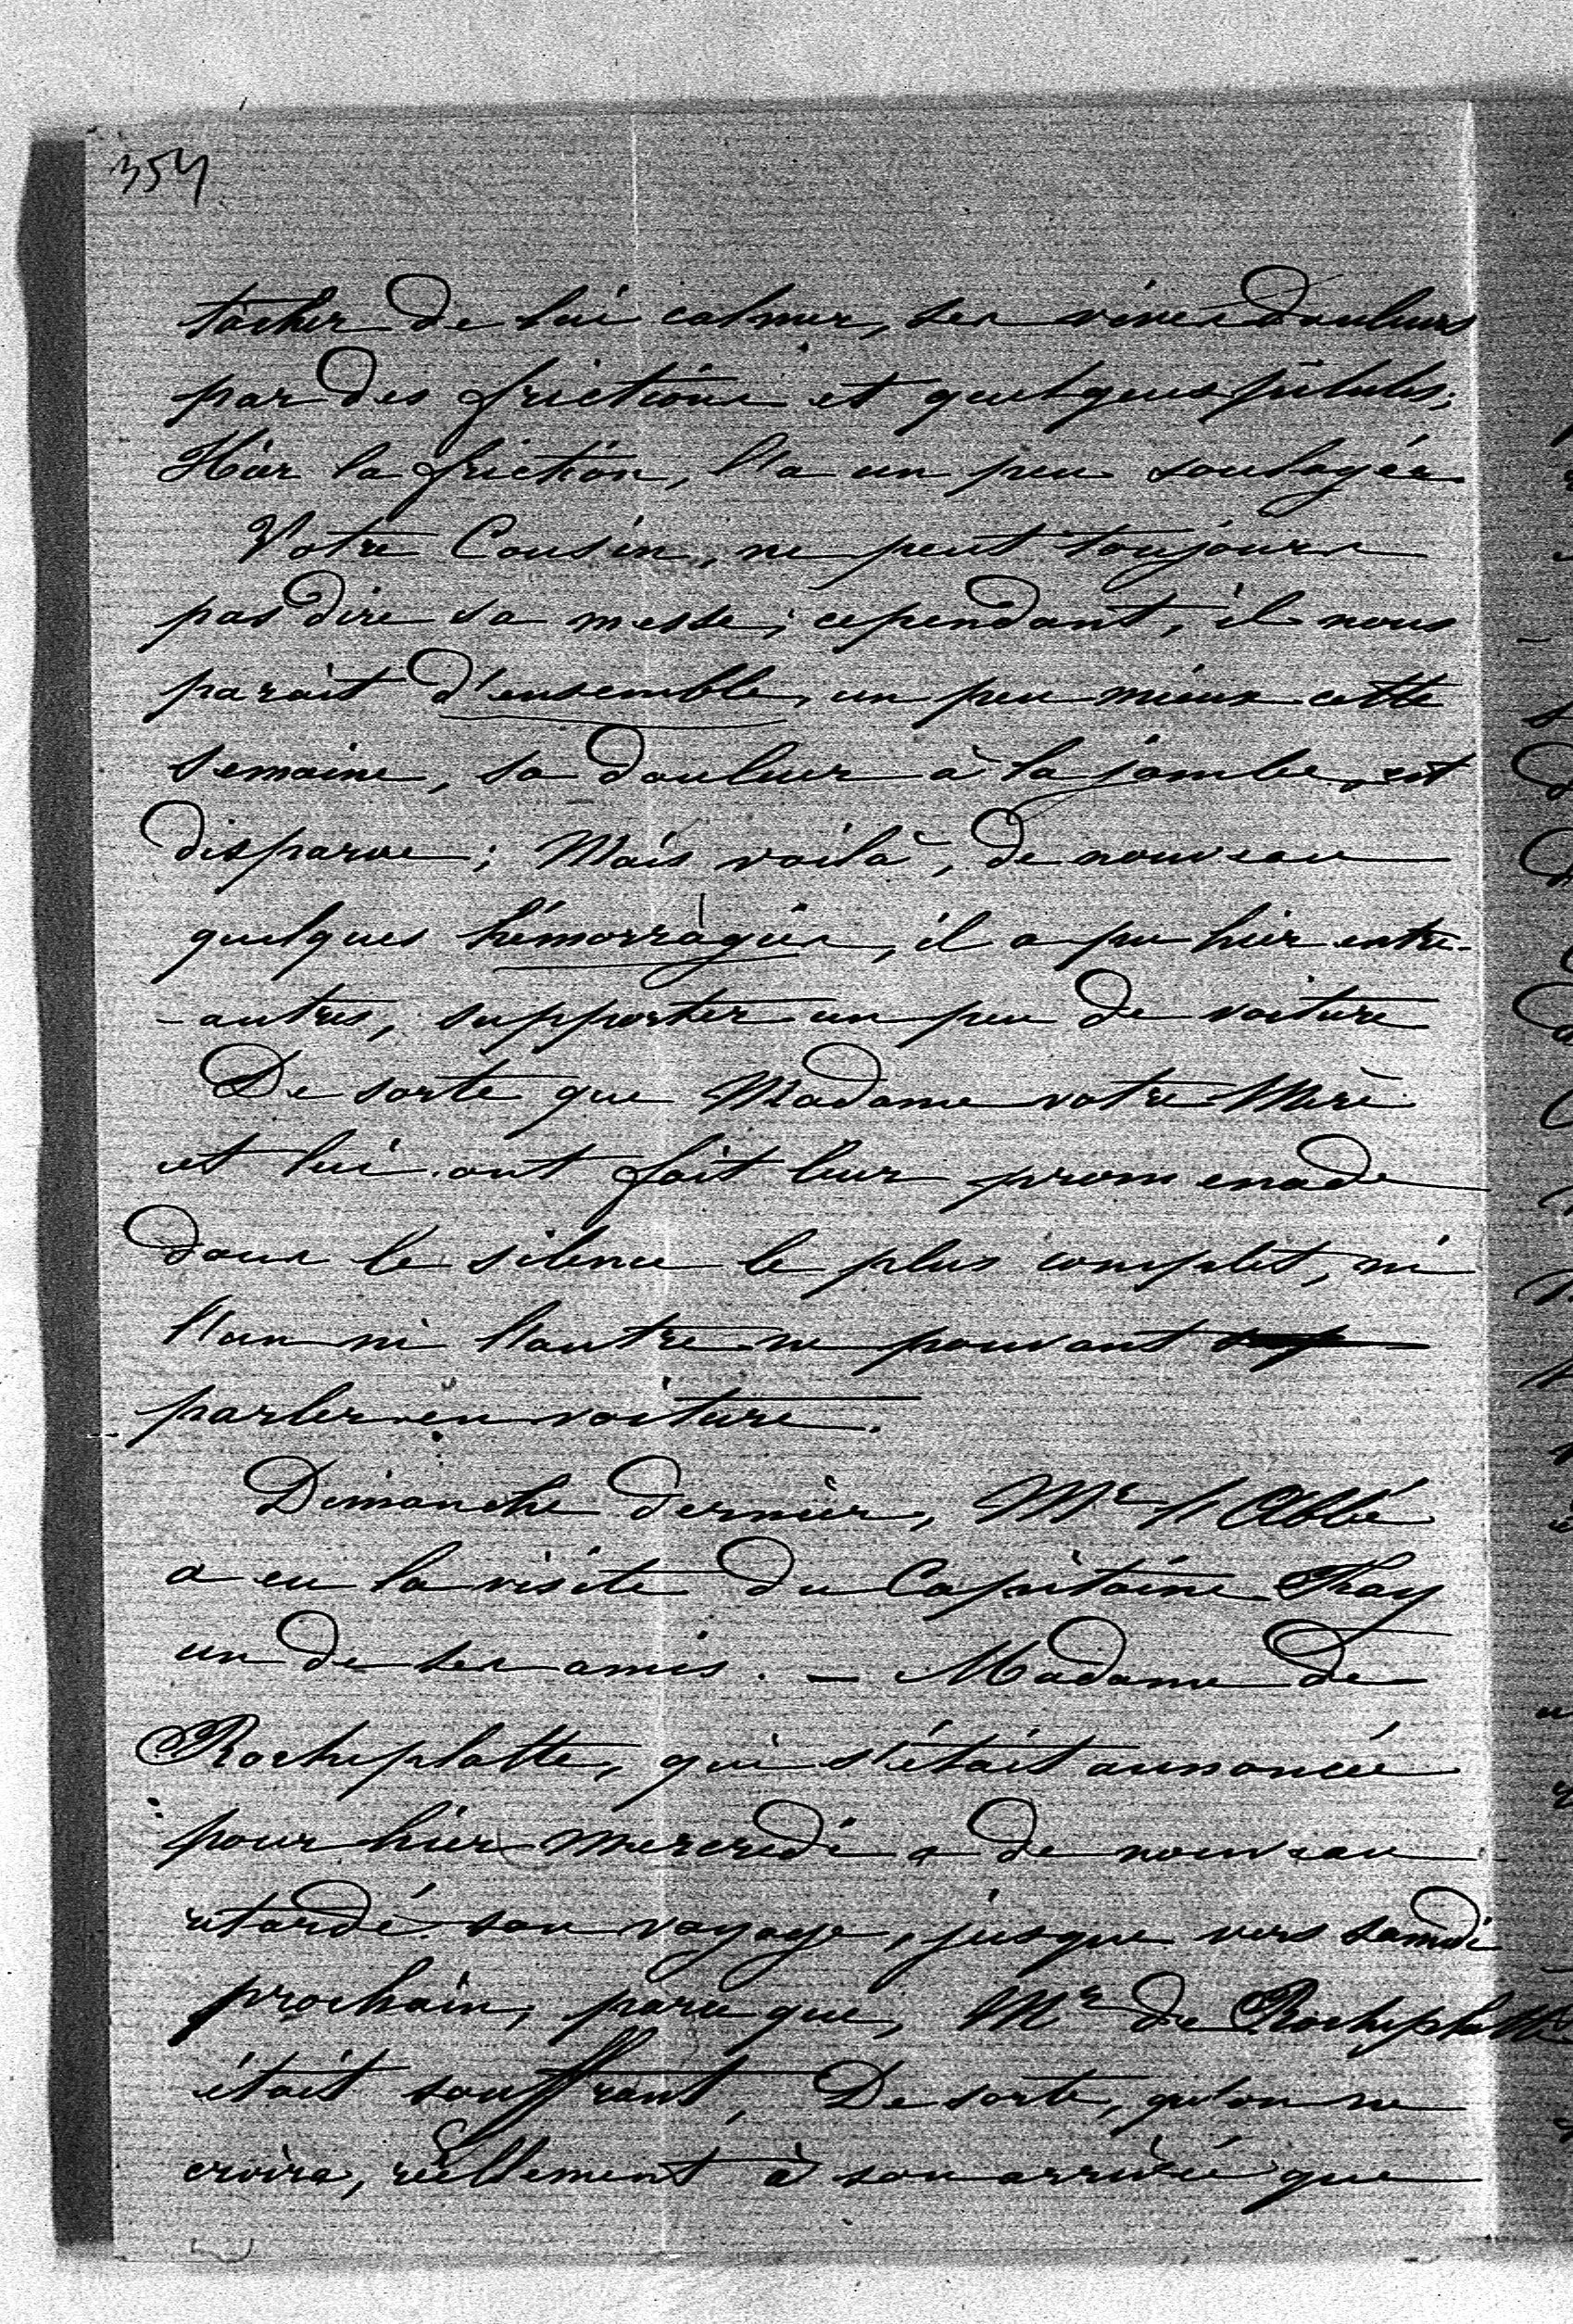 354
tâcher de lui calmer, ses vives douleurs
par des frictions et quelques pilules;
Hier la friction, l'a un peu soulagée.
Votre Cousin, ne peut toujours
pas dire sa messe; cependant, il nous
parait d'ensemble, un peu mieux cette
semaine, sa douleur à la jambe, est
disparue; Mais voilà, de nouveau
quelques hémorràgies, il a pu hier entre-
-autres, supporter un peu de voiture
De sorte que Madame votre Mère
et lui ont fait leur promenade
dans le silence le plus complet, ni
l'un ni l'autre ne pouvant
parler en voiture.
Dimanche dernier, Mr l'Abbé
a eu la visite du Capitaine
un de ses amis. — Madame de
Rocheplatte, qui s'était annoncée
pour hier mercredi a de nouveau
retardé son voyage, jusque vers samedi
prochain, parce que, Mr de Rocheplatte
était souffrant, De sorte, qu'on ne
croira, réellement à son arrivée que